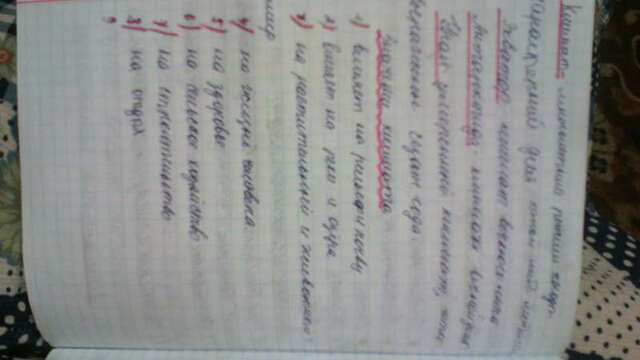 Климат - многолетний режим погоды
характерный для той или иной
Экватор климат вечного лета
Антарктида - климат вечной зимы
Урал умеренный климат, четко
выраженные сезоны года.
Значение климата
1) влияет на рельеф и почву
2) влияет на реки и озера
3) на растительный и животный
мир
4) на жизнь человека.
5) на здоровье
6) на сельское хозяйство
7) на строительство
8) на отдых
9